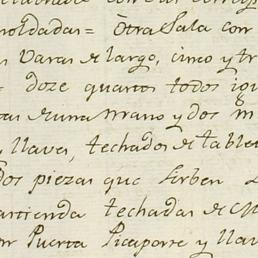 moldadas= Otra Sala con
Varas de largo, cinco y tr
= doze quartos todos igu
de una mano y dos m
llaves, techados de table
dos piezas que sirben
artienda techadas de
Puerta Picaporte y llav